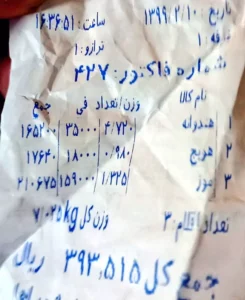 تاریخ: ۱۳۹۹/۲/۱۰ ساعت: ۱۶:۳۶:۵۱
ترازو: ۱
شماره فاکتور: ۴۲۷
نام کالا وزن/تعداد فی جمع
۱ هندوانه ۴/۷۲۰ ۳۵۰۰۰ ۱۶۵۲۰۰
۲ هویج ۰/۹۸۰ ۱۸۰۰۰ ۱۷۶۴۰
۳ موز ۱/۳۲۵ ۱۵۹۰۰۰ ۲۱۰۶۷۵
تعداد اقلام: ۳ وزن کل ۷/۰۲۵ kg
جمع کل ۳۹۳,۵۱۵ ریال